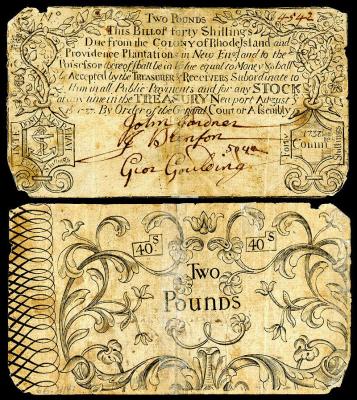 TWO POUNDS
No 4542
This Bill of forty Shillings
Due from the COLONY of Rhode Island and
Providence Plantations in New England to the
Possessor thereof shall be in Value equal to Money & shall
be Accepted by the TREASURER & RECEIVERS Subordinate to
Him in all Public Payments and for any STOCK
at any time in the TREASURY Newport August
1737. By Order of the General Court or Assembly
John Gardner
Geor Goulding
Forty
1737
Shillings
40s
40s
TWO
POUNDS